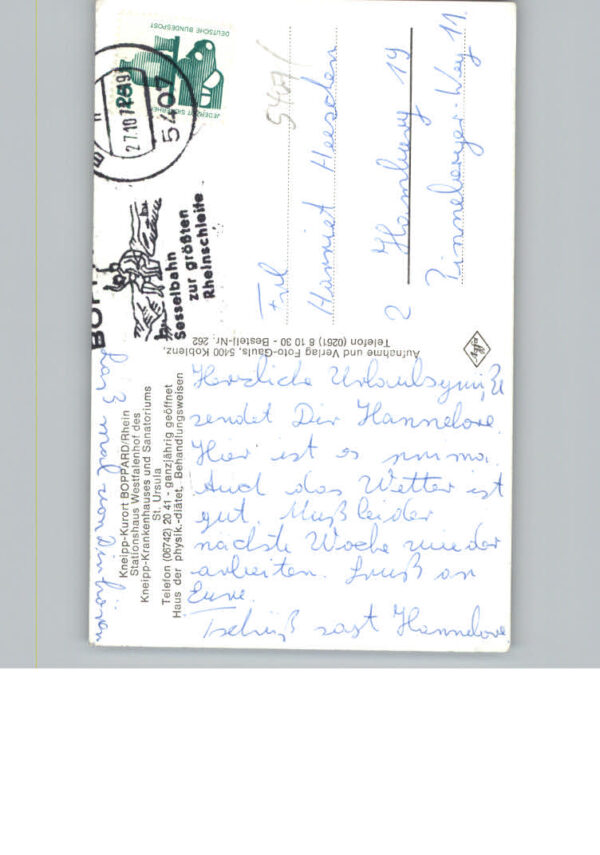 Kneipp-Kurort BOPPARD/Rhein
Stationshaus Westfalenhof des
Kneipp-Krankenhauses und Sanatoriums
St. Ursula
Telefon (06742) 20 41 - ganzjährig geöffnet
Haus der physik.-diätet. Behandlungsweisen
Herzliche Urlaubsgrüße
sendet Dir Hannelore.
Hier ist es prima.
Auch das Wetter ist
gut. Muß leider
nächste Woche wieder
arbeiten. Gruß an
Eure.
Tschüß sagt Hannelore
Laß mal von Dir hören
Aufnahme und Verlag Foto-Gauls, 5400 Koblenz,
Telefon (0261) 8 10 30 - Bestell-Nr. 262
agfa
BOPP
Sesselbahn
zur größten
Rheinschleife
27.10.7
5407
DEUTSCHE BUNDESPOST
JEDERZEIT SICHERHEIT
5407/
Frl
Harriet Heeschen
2 Hamburg 19
Pinneberger-Weg 11